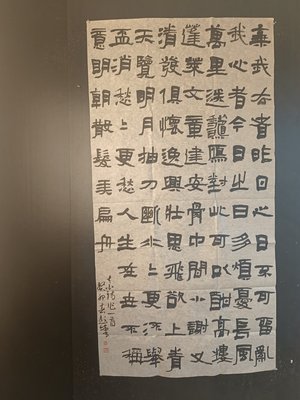 棄我去者昨日之日不可留亂
我心者今日之日多煩憂長風
萬里送秋雁對此可以酣高樓
蓬萊文章建安骨中間小謝又
清發俱懷逸興壯思飛欲上青
天覽明月抽刀斷水〻更流舉
盃消愁〻更愁人生在世不稱
意明朝散髮弄扁舟
詩一首
癸卯春